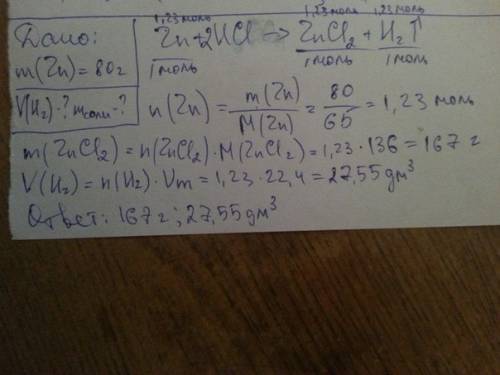 Дано:
m(Zn)=80г
V(H₂)-? mсоли-?
1,23моль 1,23моль 1,23моль
Zn+2HCl → ZnCl₂ + H₂↑
1моль 1моль 1моль
n(Zn) = m(Zn)/M(Zn) = 80/65 = 1,23 моль
m(ZnCl₂) = n(ZnCl₂)·M(ZnCl₂) = 1,23·136 = 167 г
V(H₂) = n(H₂)·Vm = 1,23·22,4 = 27,55дм³
Ответ: 167г; 27,55дм³